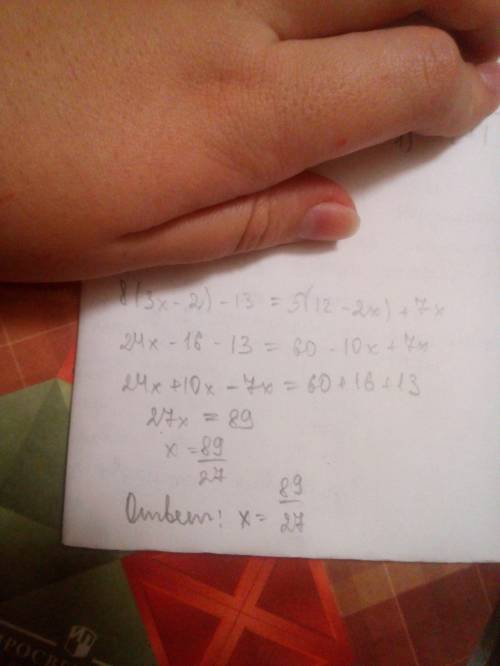 1)
8(3x - 2) - 13 = 5(12 - 2x) + 7x
24x - 16 - 13 = 60 - 10x + 7x
24x + 10x - 7x = 60 + 16 + 13
27x = 89
x = 89/27
Ответ: x = 89/27